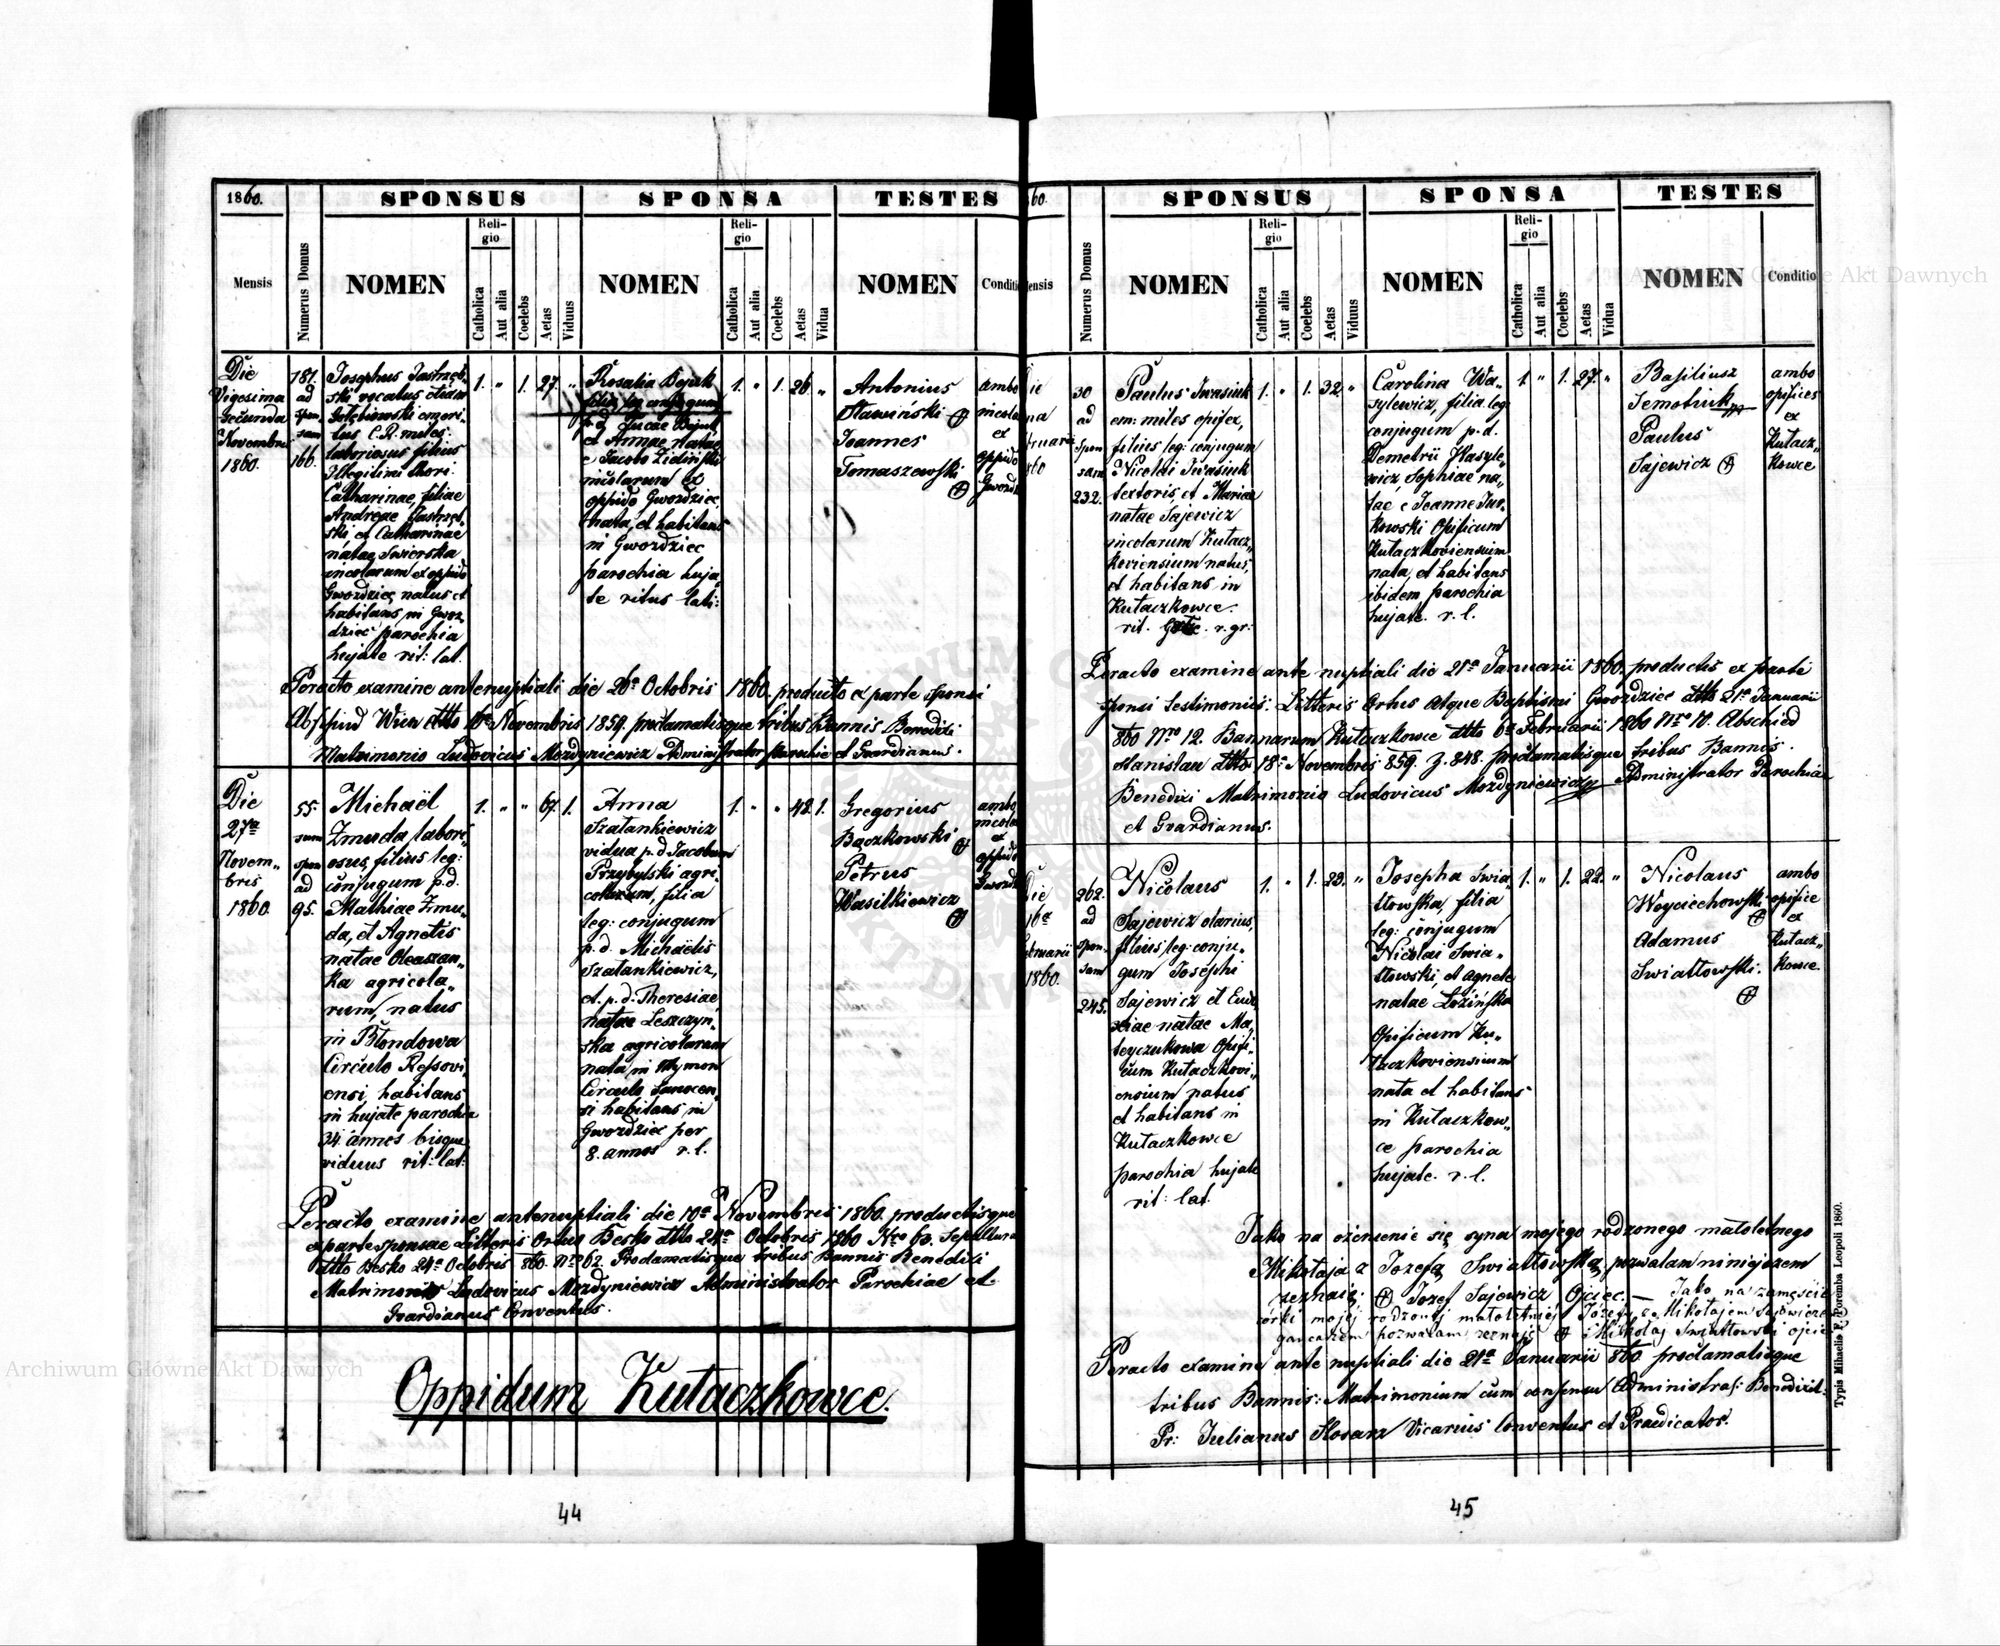 1860.
SPONSUS
SPONSA
TESTES
Mensis
Numerus Domus
NOMEN
Religio
Catholica
Aut alia
Coelebs
Aetas
Viduus
NOMEN
Religio
Catholica
Aut alia
Coelebs
Aetas
Vidua
NOMEN
Conditi
Die
Vigesima
Secunda
Novembris
1860.
181.
ad
spon
sam
166.
Josephus Jastrzęb„
ski vocatus etiam
Gołębiowski emeri„
tus C.R. miles:
laboriosus filius
Illegitimi thori
Catharinae, filiae
Andreae Jastrzęb„
ski et Catharinae
natae Swierska
incolarum ex oppido
Gwozdziec natus et
habitans in Gwoz
dziec parochia
hujate rit: lat.
1. „ 1. 27. „
Rosalia Bojuk
filia leg conjugum
p.d. Lucae Bojuk
et Annae natae
e Jacobo Zidiński
incolarum ex
oppido Gwozdziec,
nata, et habitans
in Gwozdziec
parochia huja„
te ritus lati:
1. „ 1. 26. „
Antonius
Sławiński
Joannes
Tomaszewski
ambo
incolae
ex
oppido
Gwozdz
Peracto examine antenuptiali die 26a Octobris 1860. producto ex parte sponsi
Abschied Wien dtto 16a Novembris 1859. proclamatisque tribus Bannis Benedixi
Matrimonio Ludovicus Mozdyniewicz Administrator parochiae et Gvardianus.
Die
27a
Novem„
bris
1860.
55.
sum
spon
ad
95.
Michaël
Zmuda labori„
osus, filius leg:
conjugum p.d.
Mathiae Zmu„
da, et Agnetis
natae Oleaszan„
ka agricola„
rum, natus
in Błondowa
Circulo Ressovi„
ensi, habitans
in hujate parochia
34. annos bisque
viduus rit: lat:
1. „ „ 67. 1.
Anna
Szatankiewicz
vidua p.d Jacobum
Przybylski agri„
colarum, filia
leg: conjugum
p.d. Michaëlis
Szatankiewicz,
et. p.d. Theresiae
natae Leszczyń„
ska agricolarum
nata, in Rymon
Circulo Sanocen„
si habitans, in
Gwozdziec per
8. annos r.l.
1. „ „ 48. 1.
Gregorius
Bączkowski
Petrus
Wasilkiewicz
ambo
incolae
ex
oppido
Gwozdz
Peracto examine antenuptiali die 10a Novembris 1860. productisque
ex parte sponsae Litteris Ortus Besko dtto 24a Octobris 1860 Nro 63. Sepultura
dtto Besko 24a Octobris 860. Nro 62. Proclamatisque tribus Bannis Benedixi
Matrimonio Ludovicus Mozdyniewicz Administrator Parochiae et
Gvardianus Conventus.
Oppidum Kutaczkowce.
44
60.
SPONSUS
SPONSA
TESTES
ensis
Numerus Domus
NOMEN
Religio
Catholica
Aut alia
Coelebs
Aetas
Viduus
NOMEN
Religio
Catholica
Aut alia
Coelebs
Aetas
Vidua
NOMEN
Conditio
ie
na
bruarii
860
30
ad
spon
sam
232.
Paulus Iwasiuk
em: miles opifex,
filius leg: conjugum
Nicolai Iwasiuk
textoris, et Mariae
natae Sajewicz
incolarum Kutacz„
koviensium natus,
et habitans in
Kutaczkowce.
rit. r. gr:
1. „ 1. 32. „
Carolina Wa„
sylewicz, filia leg:
conjugum p.d.
Demetrii Wasyle„
wicz, Sophiae na„
tae e Joanne Jur„
kowski Opificum
Kutaczkoviensium
nata, et habitans
ibidem parochia
hujate. r. l.
1. „ 1. 27. „
Basiliusz
Semotiuk
Paulus
Sajewicz
ambo
opifices
ex
Kutacz„
kowce
Peracto examine ante nuptiali die 21a Januarii 1860. productis ex parte
sponsi Testimoniis: Litteris Ortus Atque Baptismi Gwozdziec dtto 21a Januarii
860 Nro 12. Bannarum Kutaczkowce dtto 6a Februarii 1860 Nro 10. Abschied
Stanislau dtto 18a Novembris 859. Z. 848. proclamatisque tribus Bannis.
Benedixi Matrimonio Ludovicus Mozdyniewicz Administrator Parochiae
et Gvardianus.
Die
16a
bruarii
1860.
262.
ad
spon„
sam
245.
Nicolaus
Sajewicz olarius,
filius, leg: conju„
gum Josephi
Sajewicz et Eudo
xiae natae Ma„
teyczukowa Opifi„
cum Kutaczkovi„
ensium natus
et habitans in
Kutaczkowce
parochia hujate
rit: lat.
1. „ 1. 23. „
Josepha Swia„
tłowska, filia
leg: conjugum
Nicolai Swia„
tłowski, et Agnete
natae Łozińska
Opificum Ku„
taczkoviensium
nata et habitans
in Kutaczkow„
ce parochia
hujate. r. l.
1. „ 1. 22. „
Nicolaus
Woyciechowski
Adamus
Swiatłowski.
ambo
opifice
ex
Kutacz„
kowce.
Jako na ożenienie się syna mojego rodzonego małoletnego
Mikołaja z Jozefą Swiatłowską, pozwalam niniejszem
zeznaię: Jozef Sajewicz Ojciec. — Jako na zamęście
córki mojej rodzonej małoletniej Józefy z Mikołajem Sajewicze
pozwalam zeznaję Mikołaj Swiatłowski ojcie
Peracto examine ante nuptiali die 21a Januarii 860. proclamatisque
tribus Bannis: Matrimonium cum consensu Administrat: Benedixit:
Pr: Julianus Slosarz Vicarius Conventus et Praedicator.
Typis Mihaelis F. Poremba Leopoli 1860.
45
Archiwum Główne Akt Dawnych
Archiwum Główne Akt Dawnych